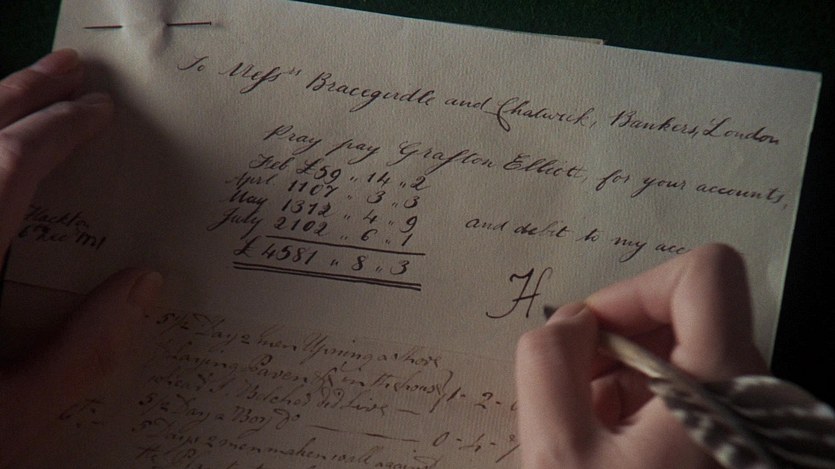 To Messrs Bracegirdle and Chatwick, Bankers, London
Pray pay Grafton Elliott, for your accounts,
Feb £59 " 14 " 2
Aprl 1107 " 3 " 3
May 1312 " 4 " 9
July 2102 " 6 " 1
£ 4581 " 8 " 3
and debit to my acc
H
Hackton
5 1/2 Day 2 men
in the house
5 1/2 Day a Boy Do
5 Days 2 men